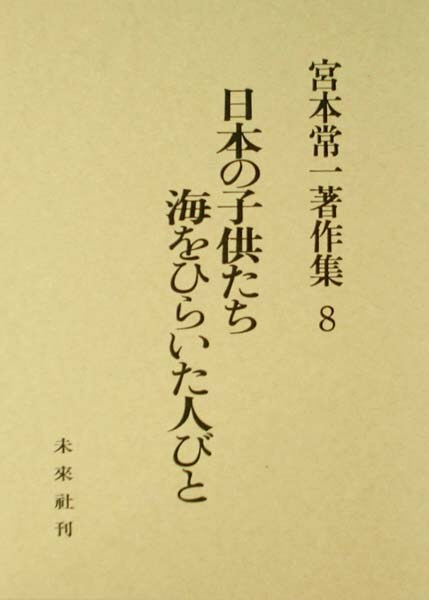 宮本常一著作集 8
日本の子供たち
海をひらいた人びと
未來社刊